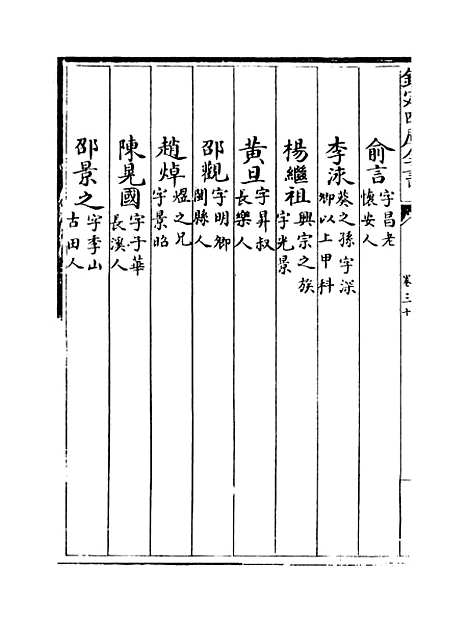 欽定四庫全書
卷三十
俞言 字昌老懷安人
李洡 葵之孫字深卿以上甲科
楊繼祖 興宗之族字光景
黄旦 字昇叔長樂人
邵觀 字明卿閩縣人
趙焯 煜之兄字景昭
陳晃國 字子華長溪人
邵景之 字季山古田人